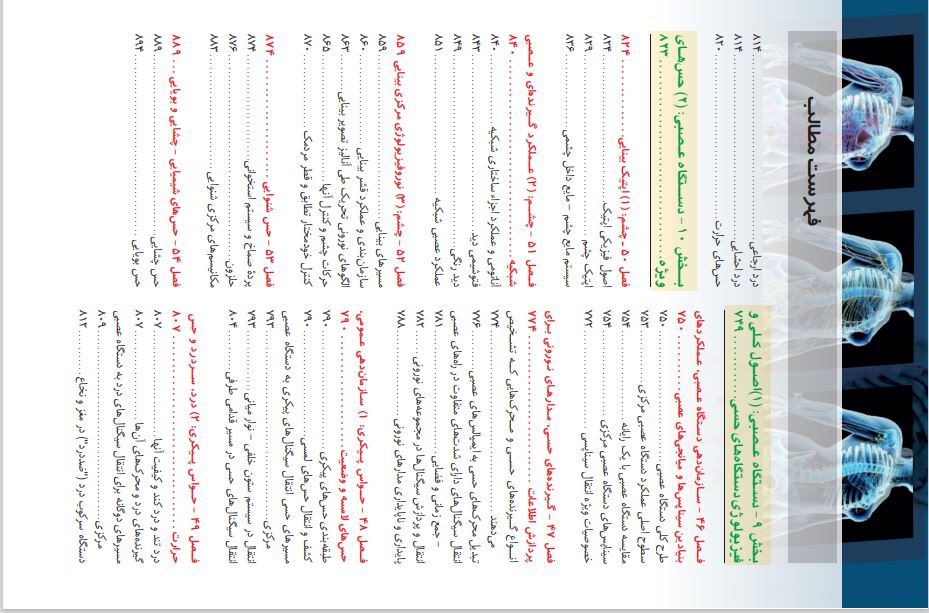 فهرست مطالب
بخش ۹ - دستگاه عصبی: (۱) اصول کلی و
فیزیولوژی دستگاه‌های حسی ۷۴۹
فصل ۴۶ - سازمان‌دهی دستگاه عصبی، عملکردهای
بنیادین سیناپس‌ها و میانجی‌های عصبی ۷۵۰
طرح کلی دستگاه عصبی ۷۵۰
سطوح اصلی عملکرد دستگاه عصبی مرکزی ۷۵۳
مقایسه دستگاه عصبی با یک رایانه ۷۵۴
سیناپس‌های دستگاه عصبی مرکزی ۷۵۴
خصوصیات ویژه انتقال سیناپسی ۷۷۲
فصل ۴۷ - گیرنده‌های حسی، مدارهای نورونی برای
پردازش اطلاعات ۷۷۴
انواع گیرنده‌های حسی و محرک‌هایی که تشخیص
می‌دهند ۷۷۴
تبدیل محرک‌های حسی به ایمپالس‌های عصبی ۷۷۶
انتقال سیگنال‌های دارای شدت‌های متفاوت در راه‌های عصبی
- جمع زمانی و فضایی ۷۸۱
انتقال و پردازش سیگنال‌ها در مجموعه‌های نورونی ۷۸۲
پایداری و ناپایداری مدارهای نورونی ۷۸۸
فصل ۴۸ - حواس پیکری: ۱) سازمان‌دهی عمومی،
حس‌های لامسه و وضعیت ۷۹۰
طبقه‌بندی حس‌های پیکری ۷۹۰
کشف و انتقال حس‌های لمسی ۷۹۰
مسیرهای حسی انتقال سیگنال‌های پیکری به دستگاه عصبی
مرکزی ۷۹۲
انتقال در سیستم ستون خلفی - نوار میانی ۷۹۳
انتقال سیگنال های حسی در مسیر قدامی طرفی ۸۰۴
فصل ۴۹ - حواس پیکری: ۲) درد، سردرد و حس
حرارت ۸۰۷
درد تند و درد کند و کیفیت آنها ۸۰۷
گیرنده‌های درد و محرک‌های آن‌ها ۸۰۷
مسیرهای دوگانه برای انتقال سیگنال‌های درد به دستگاه عصبی
مرکزی ۸۰۹
دستگاه سرکوب درد ("ضددرد") در مغز و نخاع ۸۱۲
درد ارجاعی ۸۱۴
درد احشایی ۸۱۴
حس‌های حرارت ۸۲۰
بخش ۱۰ - دستگاه عصبی: (۲) حس‌های
ویژه ۸۲۳
فصل ۵۰ - چشم: (۱) اپتیک بینایی ۸۲۴
اصول فیزیکی اپتیک ۸۲۴
اپتیک چشم ۸۲۹
سیستم مایع چشم - مایع داخل چشمی ۸۳۶
فصل ۵۱ - چشم: (۲) عملکرد گیرنده‌ای و عصبی
شبکیه ۸۴۰
آناتومی و عملکرد اجزاء ساختاری شبکیه ۸۴۰
فتوشیمی دید ۸۴۳
دید رنگی ۸۴۹
عملکرد عصبی شبکیه ۸۵۱
فصل ۵۲ - چشم: (۳) نوروفیزیولوژی مرکزی بینایی ۸۵۹
مسیرهای بینایی ۸۵۹
سازمان‌بندی و عملکرد قشر بینایی ۸۶۰
الگوهای نورونی تحریک طی آنالیز تصویر بینایی ۸۶۳
حرکات چشم و کنترل آنها ۸۶۵
کنترل خودمختار تطابق و قطر مردمک ۸۷۰
فصل ۵۳ - حس شنوایی ۸۷۴
پردهٔ صماخ و سیستم استخوانی ۸۷۴
حلزون ۸۷۶
مکانیسم‌های مرکزی شنوایی ۸۸۳
فصل ۵۴ - حس‌های شیمیایی - چشایی و بویایی ۸۸۹
حس چشایی ۸۸۹
حس بویایی ۸۹۴